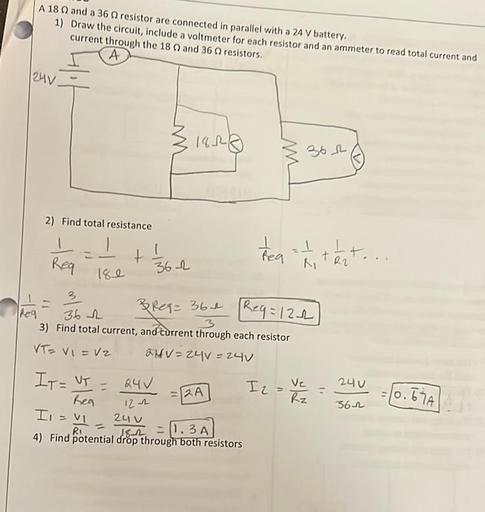 A 18 Ω and a 36 Ω resistor are connected in parallel with a 24 V battery.
1) Draw the circuit, include a voltmeter for each resistor and an ammeter to read total current and
current through the 18 Ω and 36 Ω resistors.
A
24V
18Ω V
36 Ω V
2) Find total resistance
1/Req = 1/18Ω + 1/36Ω
1/Req = 1/R1 + 1/R2 + . . .
1/Req = 3/36Ω
3Req = 36Ω/3
Req = 12Ω
3) Find total current, and current through each resistor
VT = V1 = V2
24V = 24V = 24V
IT = VT/Req = 24V/12Ω = 2A
I2 = V2/R2 = 24V/36Ω = 0.67A
I1 = V1/R1 = 24V/18Ω = 1.3A
4) Find potential drop through both resistors